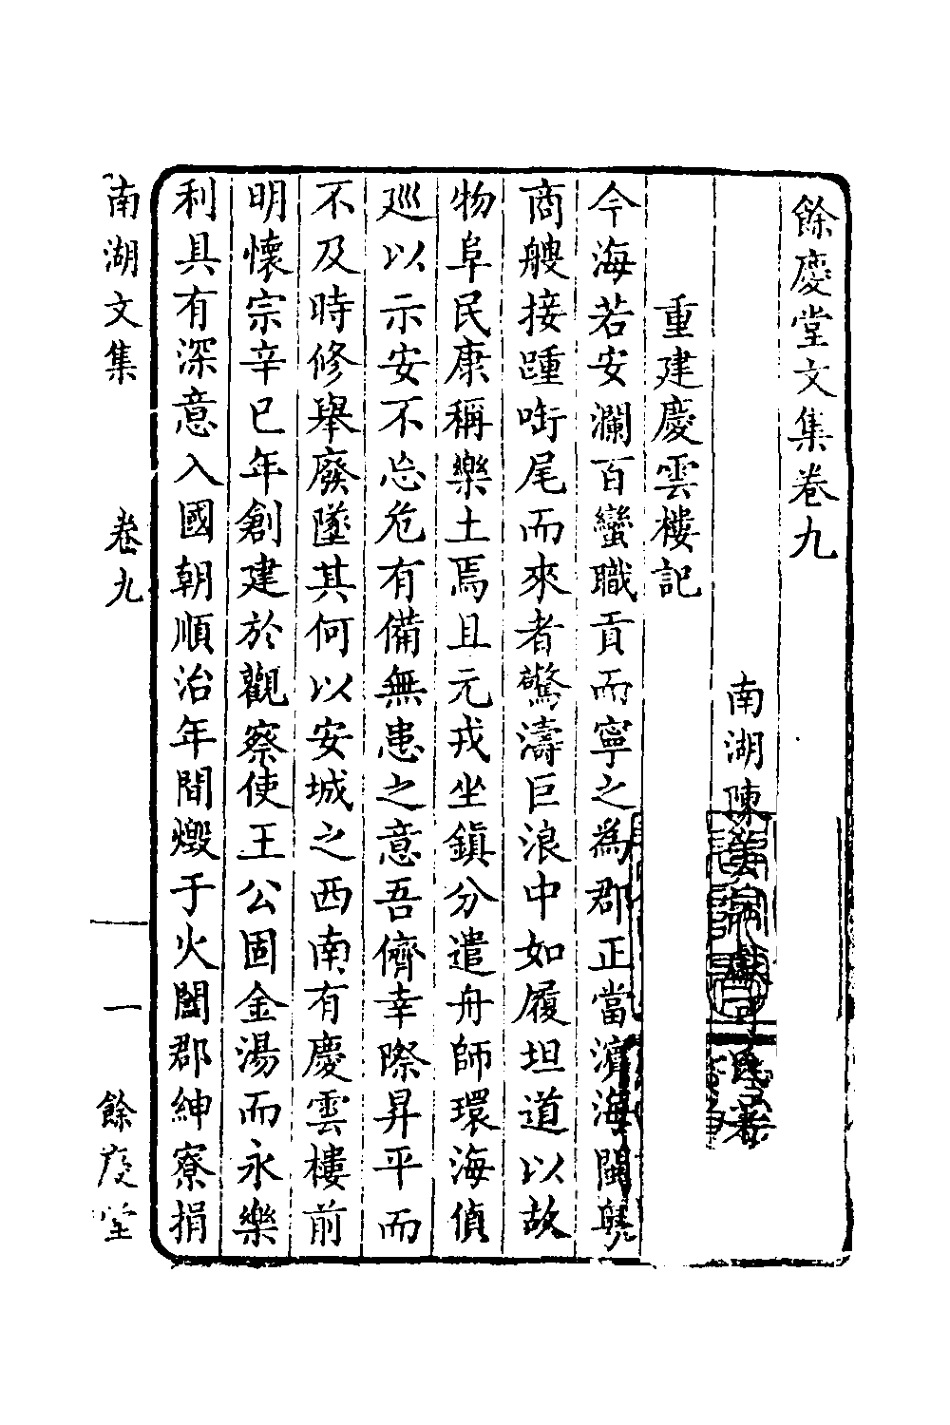 餘慶堂文集卷九
南湖陳美訓獻可氏著
重建慶雲樓記
今海若安瀾百蠻職貢而寧之為郡正當濱海閩粵
商艘接踵啣尾而來者驚濤巨浪中如履坦道以故
物阜民康稱樂土焉且元戎坐鎮分遣舟師環海偵
廵以示安不忘危有備無患之意吾儕幸際昇平而
不及時修舉廢墜其何以安城之西南有慶雲樓前
明懷宗辛巳年創建於觀察使王公固金湯而永樂
利具有深意入國朝順治年間燬于火闔郡紳寮捐
南湖文集 卷九 一 餘慶堂